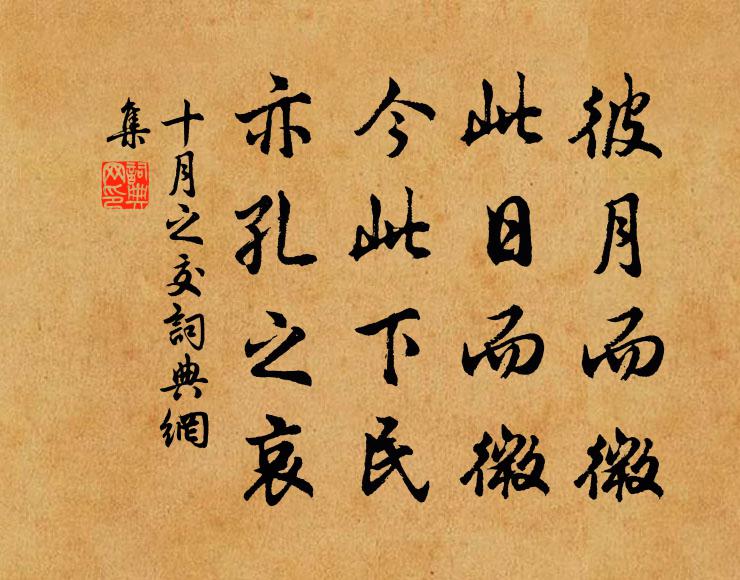 彼月而微
此日而微
今此下民
亦孔之哀
十月之交詞典網
集
詞典
网印